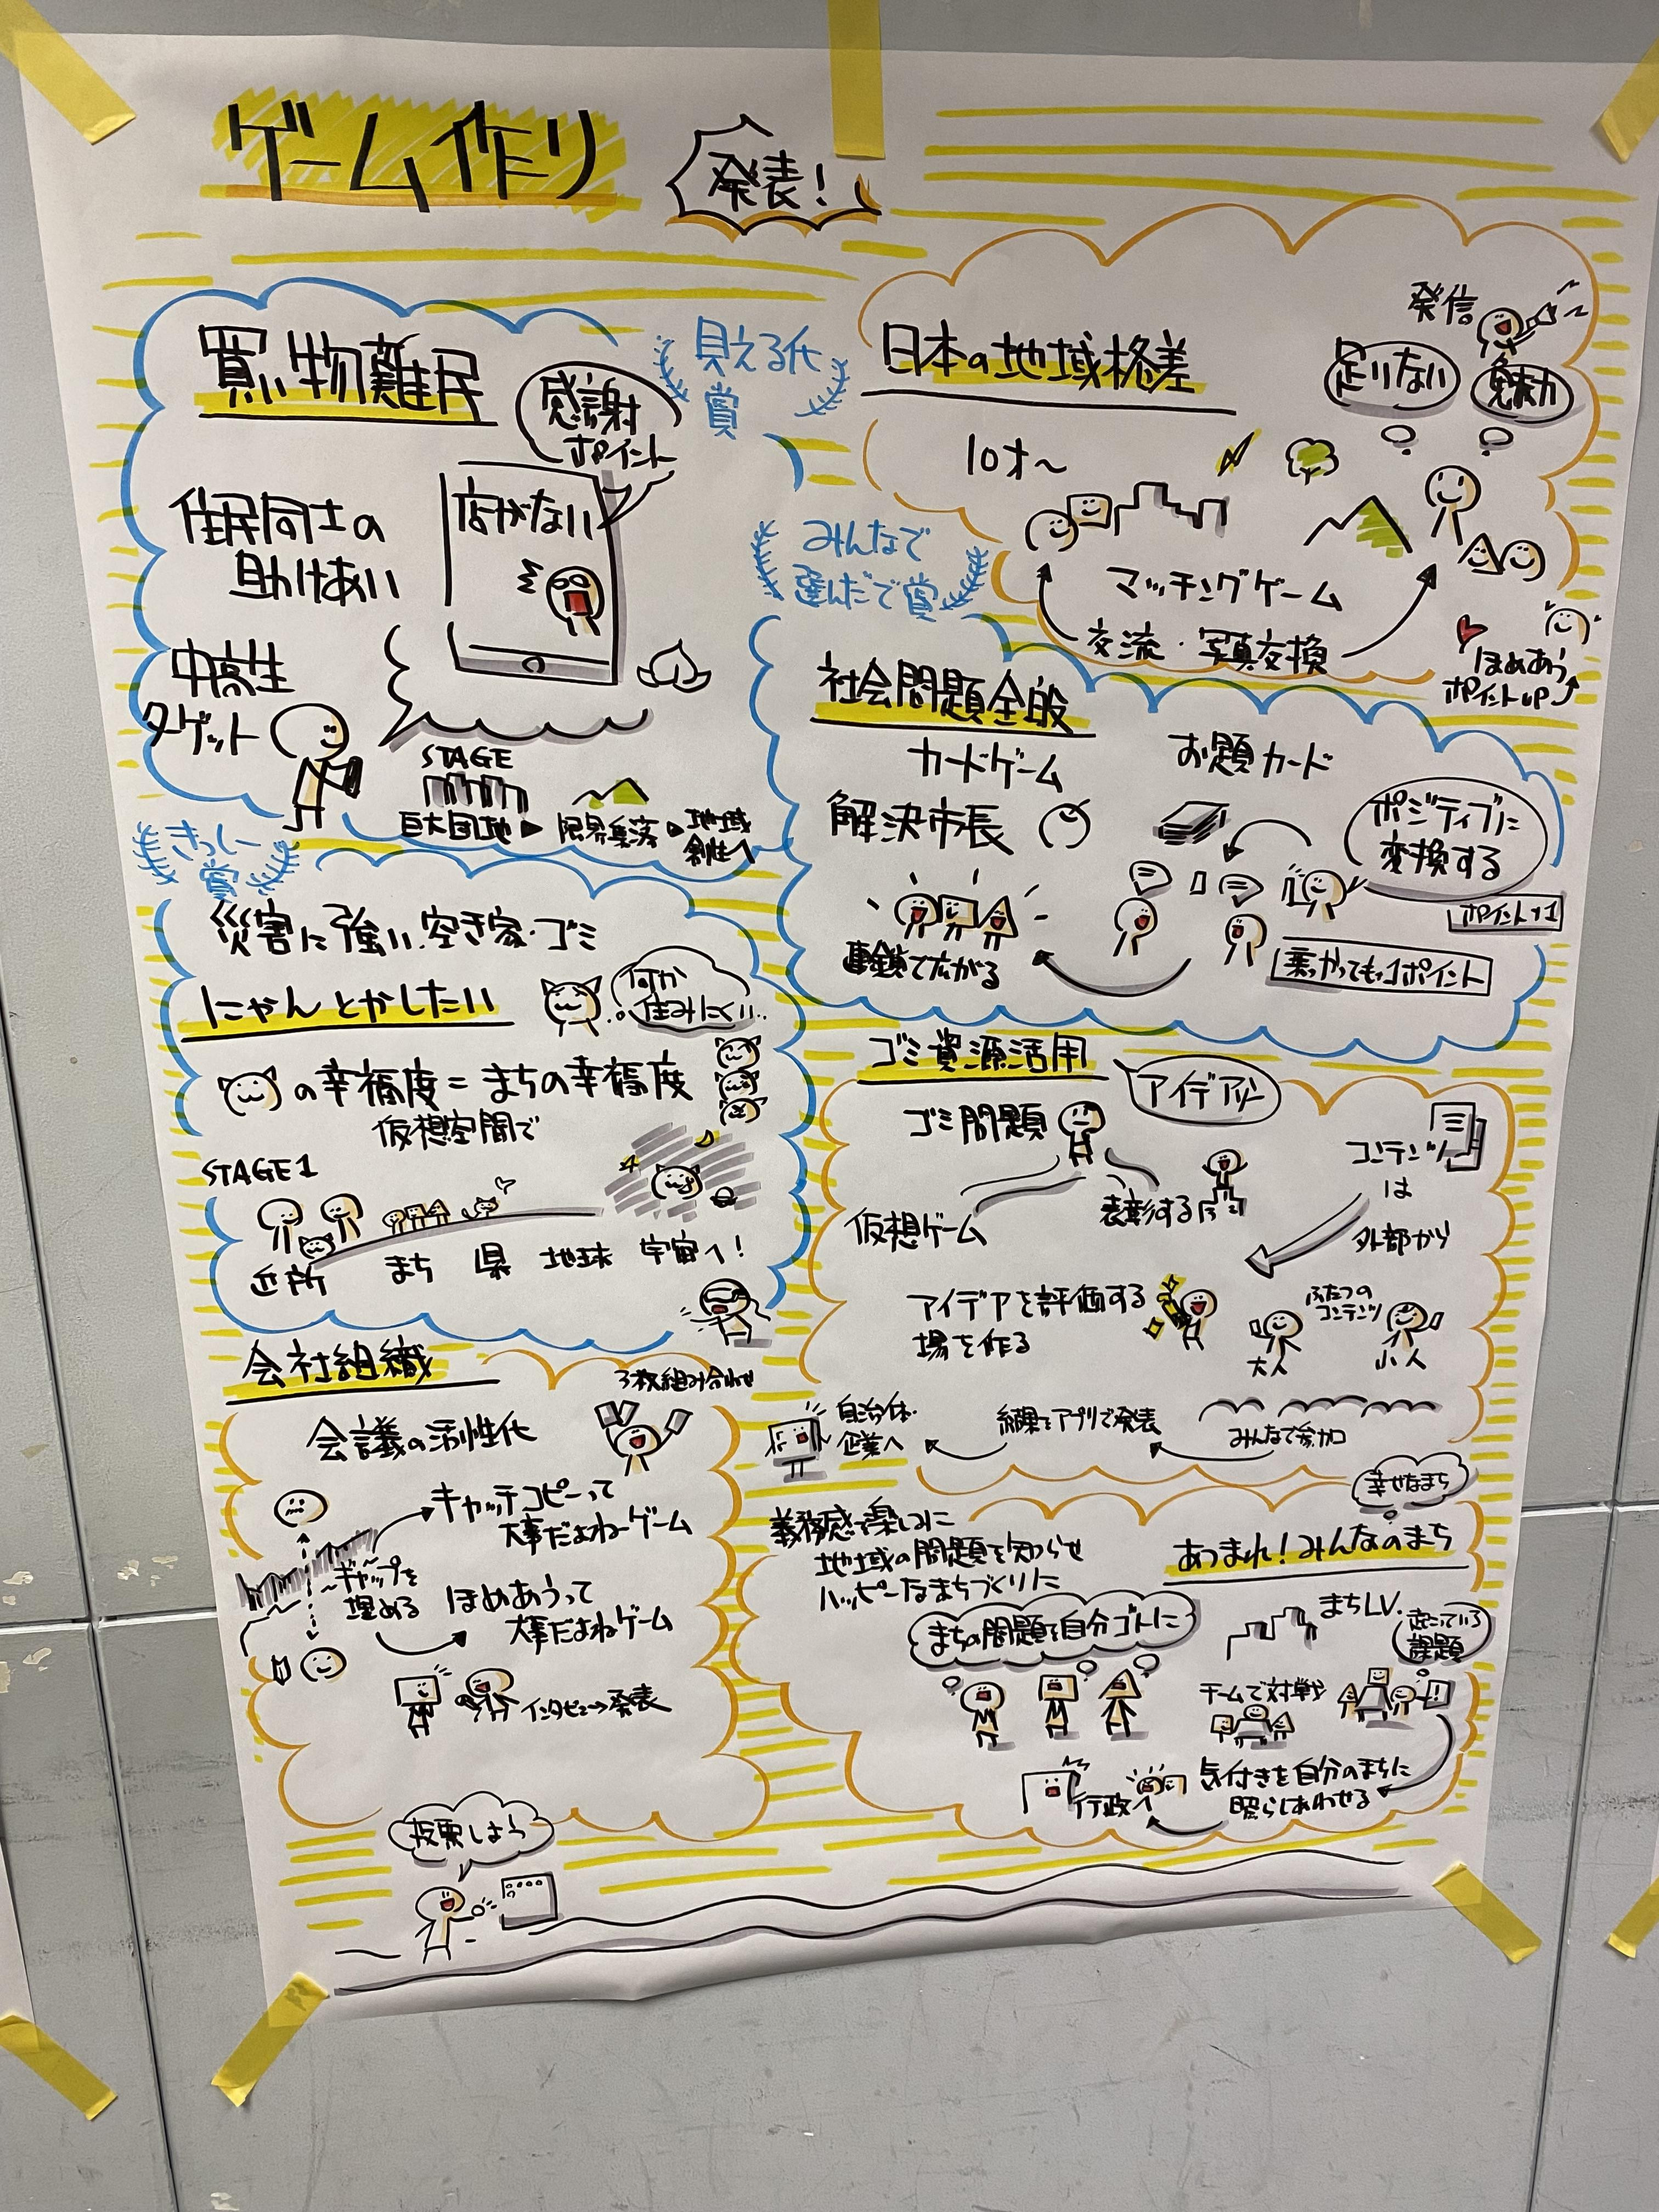 ゲーム作り
発表!
見える化
賞
買い物難民
感謝
ポイント
住民同士の
助けあい
店がない
中高生
ターゲット
STAGE
巨大団地▶限界集落▶地域
創生へ
日本の地域格差
発信
足りない
魅力
10才〜
マッチングゲーム
交流・写真交換
ほめあう
ポイントUP
みんなで
選んだで賞
社会問題全般
カードゲーム
お題カード
解決市長
ポジティブに
変換する
ポイント+1
乗っかっても1ポイント
連鎖で広がる
きっしー
賞
災害に強い・空き家・ゴミ
にゃんとかしたい
何か
住みにくい..
の幸福度=まちの幸福度
仮想空間で
STAGE1
近所 まち 県 地球 宇宙へ!
ゴミ資源活用
ゴミ問題
コンテンツ
は
外部から
仮想ゲーム
表彰する
アイデアを評価する
場を作る
ふたつの
コンテンツ
大人
小人
みんなで参加
結果をアプリで発表
自治体・
企業へ
会社組織
3枚組み合わせ
会議の活性化
キャッチコピーって
大事だよねーゲーム
ギャップを
埋める
ほめあうって
大事だよねゲーム
インタビュー→発表
幸せなまち
あつまれ!みんなのまち
義務感で楽しみに
地域の問題を知らせ
ハッピーなまちづくりに
まちの問題を自分ゴトに
まちLV.
起こっている
課題
チームで対戦
気付きを自分のまちに
照らしあわせる
行政へ
投票しよう